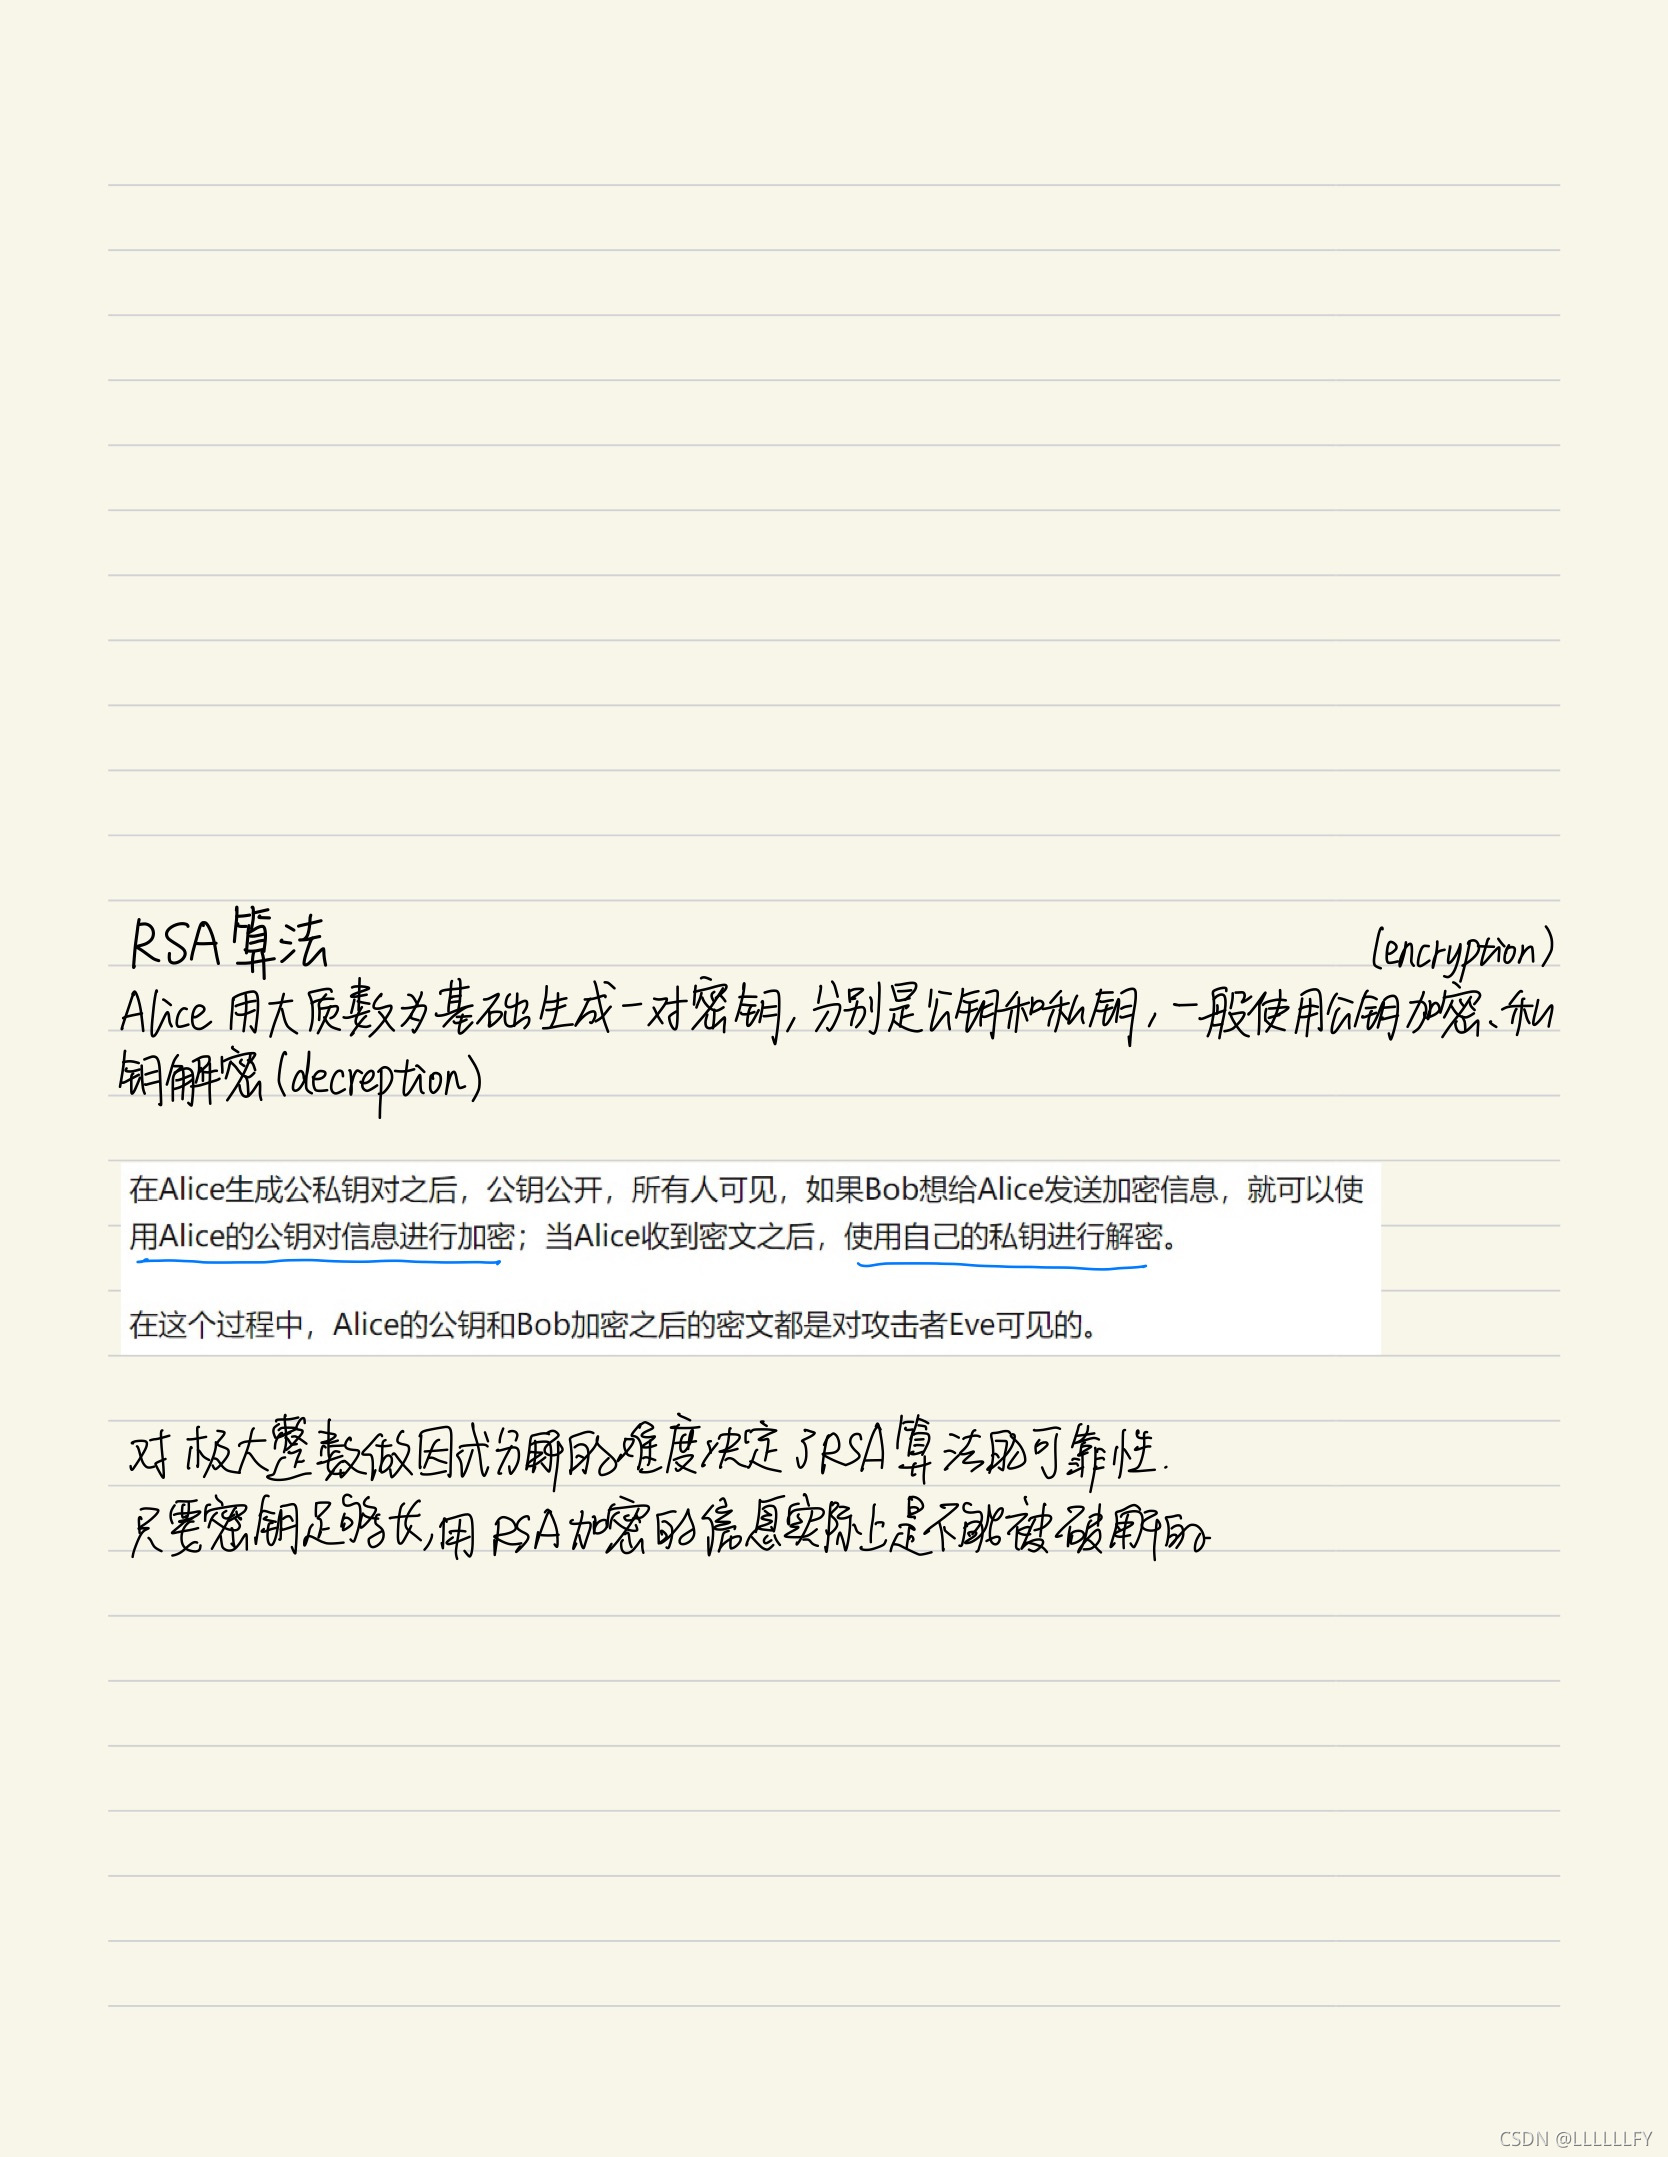 RSA算法
(encryption)
Alice 用大质数为基础生成一对密钥,分别是公钥和私钥,一般使用公钥加密、私
钥解密(decreption)
在Alice生成公私钥对之后，公钥公开，所有人可见，如果Bob想给Alice发送加密信息，就可以使
用Alice的公钥对信息进行加密；当Alice收到密文之后，使用自己的私钥进行解密。
在这个过程中，Alice的公钥和Bob加密之后的密文都是对攻击者Eve可见的。
对极大整数做因式分解的难度决定了RSA算法的可靠性.
只要密钥足够长,用RSA加密的信息实际上是不能被破解的
CSDN @LLLLLLFY